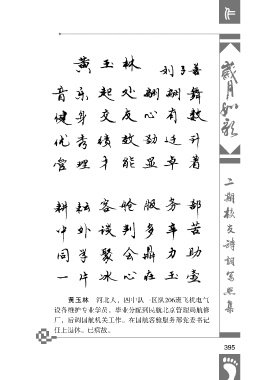 作
岁月如歌
二期校友诗词写照集
黄玉林
刘子善
音乐起处翩翩舞
健身交友心有数
优秀绩效勤进计
管理才能显卓著
耕耘客舱服务部
中外谈判多辛苦
同学聚会鼎力助
一片冰心在玉壶
黄玉林 河北人，四中队一区队206班飞机电气
设备维护专业学员，毕业分配到民航北京管理局航修
厂，后调国航机关工作。在国航客舱服务部党委书记
任上退休。已病故。
395